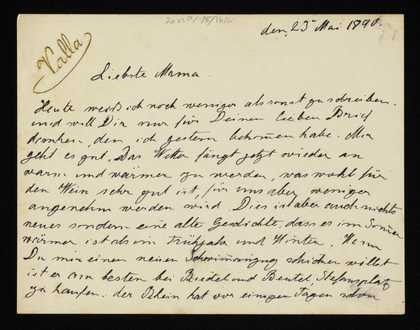 den 25 Mai 1890.
Valla
Liebste Mama.
Heute weiß ich noch weniger als sonst zu schreiben
und will Dir nur für Deinen lieben Brief
danken, den ich gestern bekommen habe. Mir
geht es gut. Das Wetter fängt jetzt wieder an
warm und wärmer zu werden, was wohl für
den Wein sehr gut ist, für uns aber weniger
angenehm werden wird. Dies ist aber auch nichts
neues sondern eine alte Geschichte, dass es im Sommer
wärmer ist als im Frühjahr und Winter. Wenn
Du mir einen neuen Schwimmanzug schicken willst
ist er am besten bei Beidel und Beutel, Stefansplatz
zu kaufen. der Rhein hat vor einigen Tagen schon